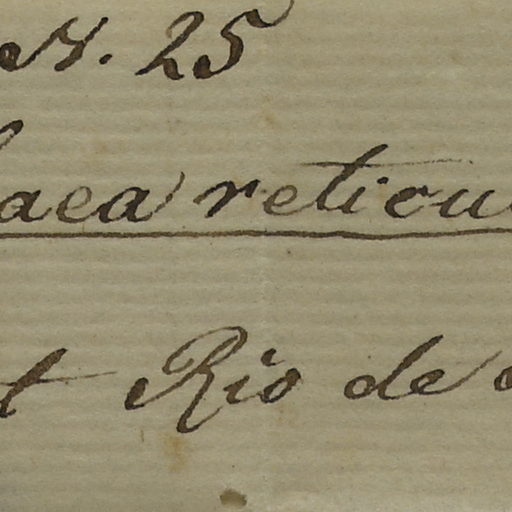 N. 25
aea reticu
t Rio de